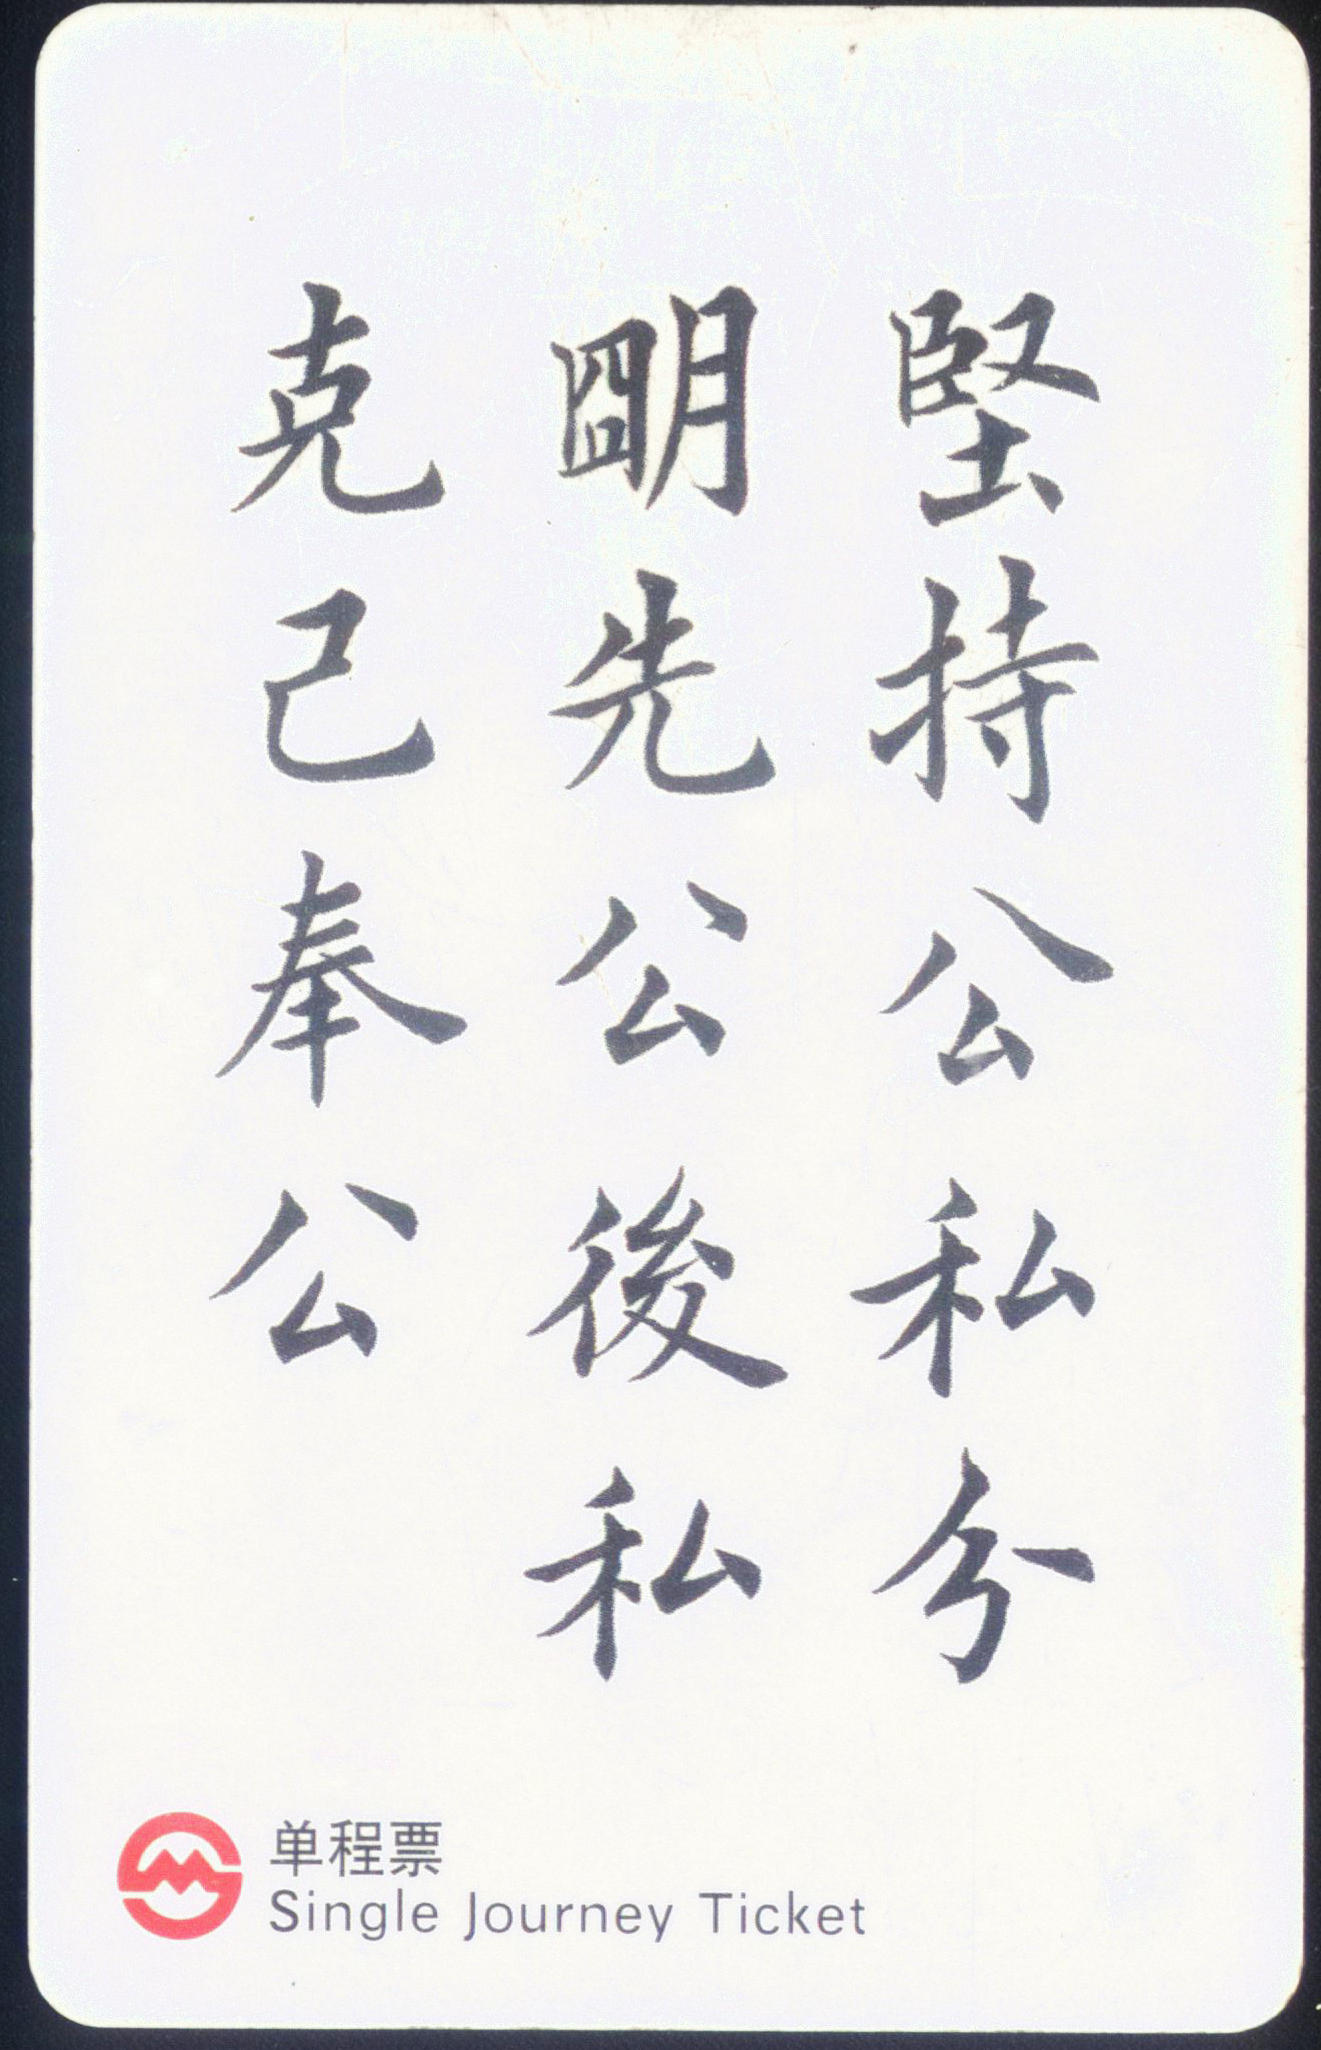 堅持公私分
朙先公後私
克己奉公
单程票
Single Journey Ticket